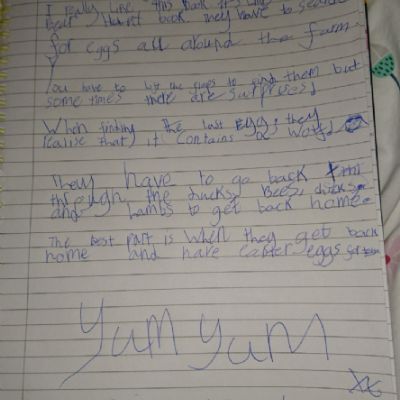 I really like this book it's like
bear Hunt book they have to search
for eggs all around the farm.
You have to lift the flaps to find them but
some times there are surprises!
When finding the last Egg, they
realise that it contains a
They have to go back
through the ducks, Bees, chicks
and Lambs to get back home.
The best part is when they get back
home and have easter eggs for
Yum Yum